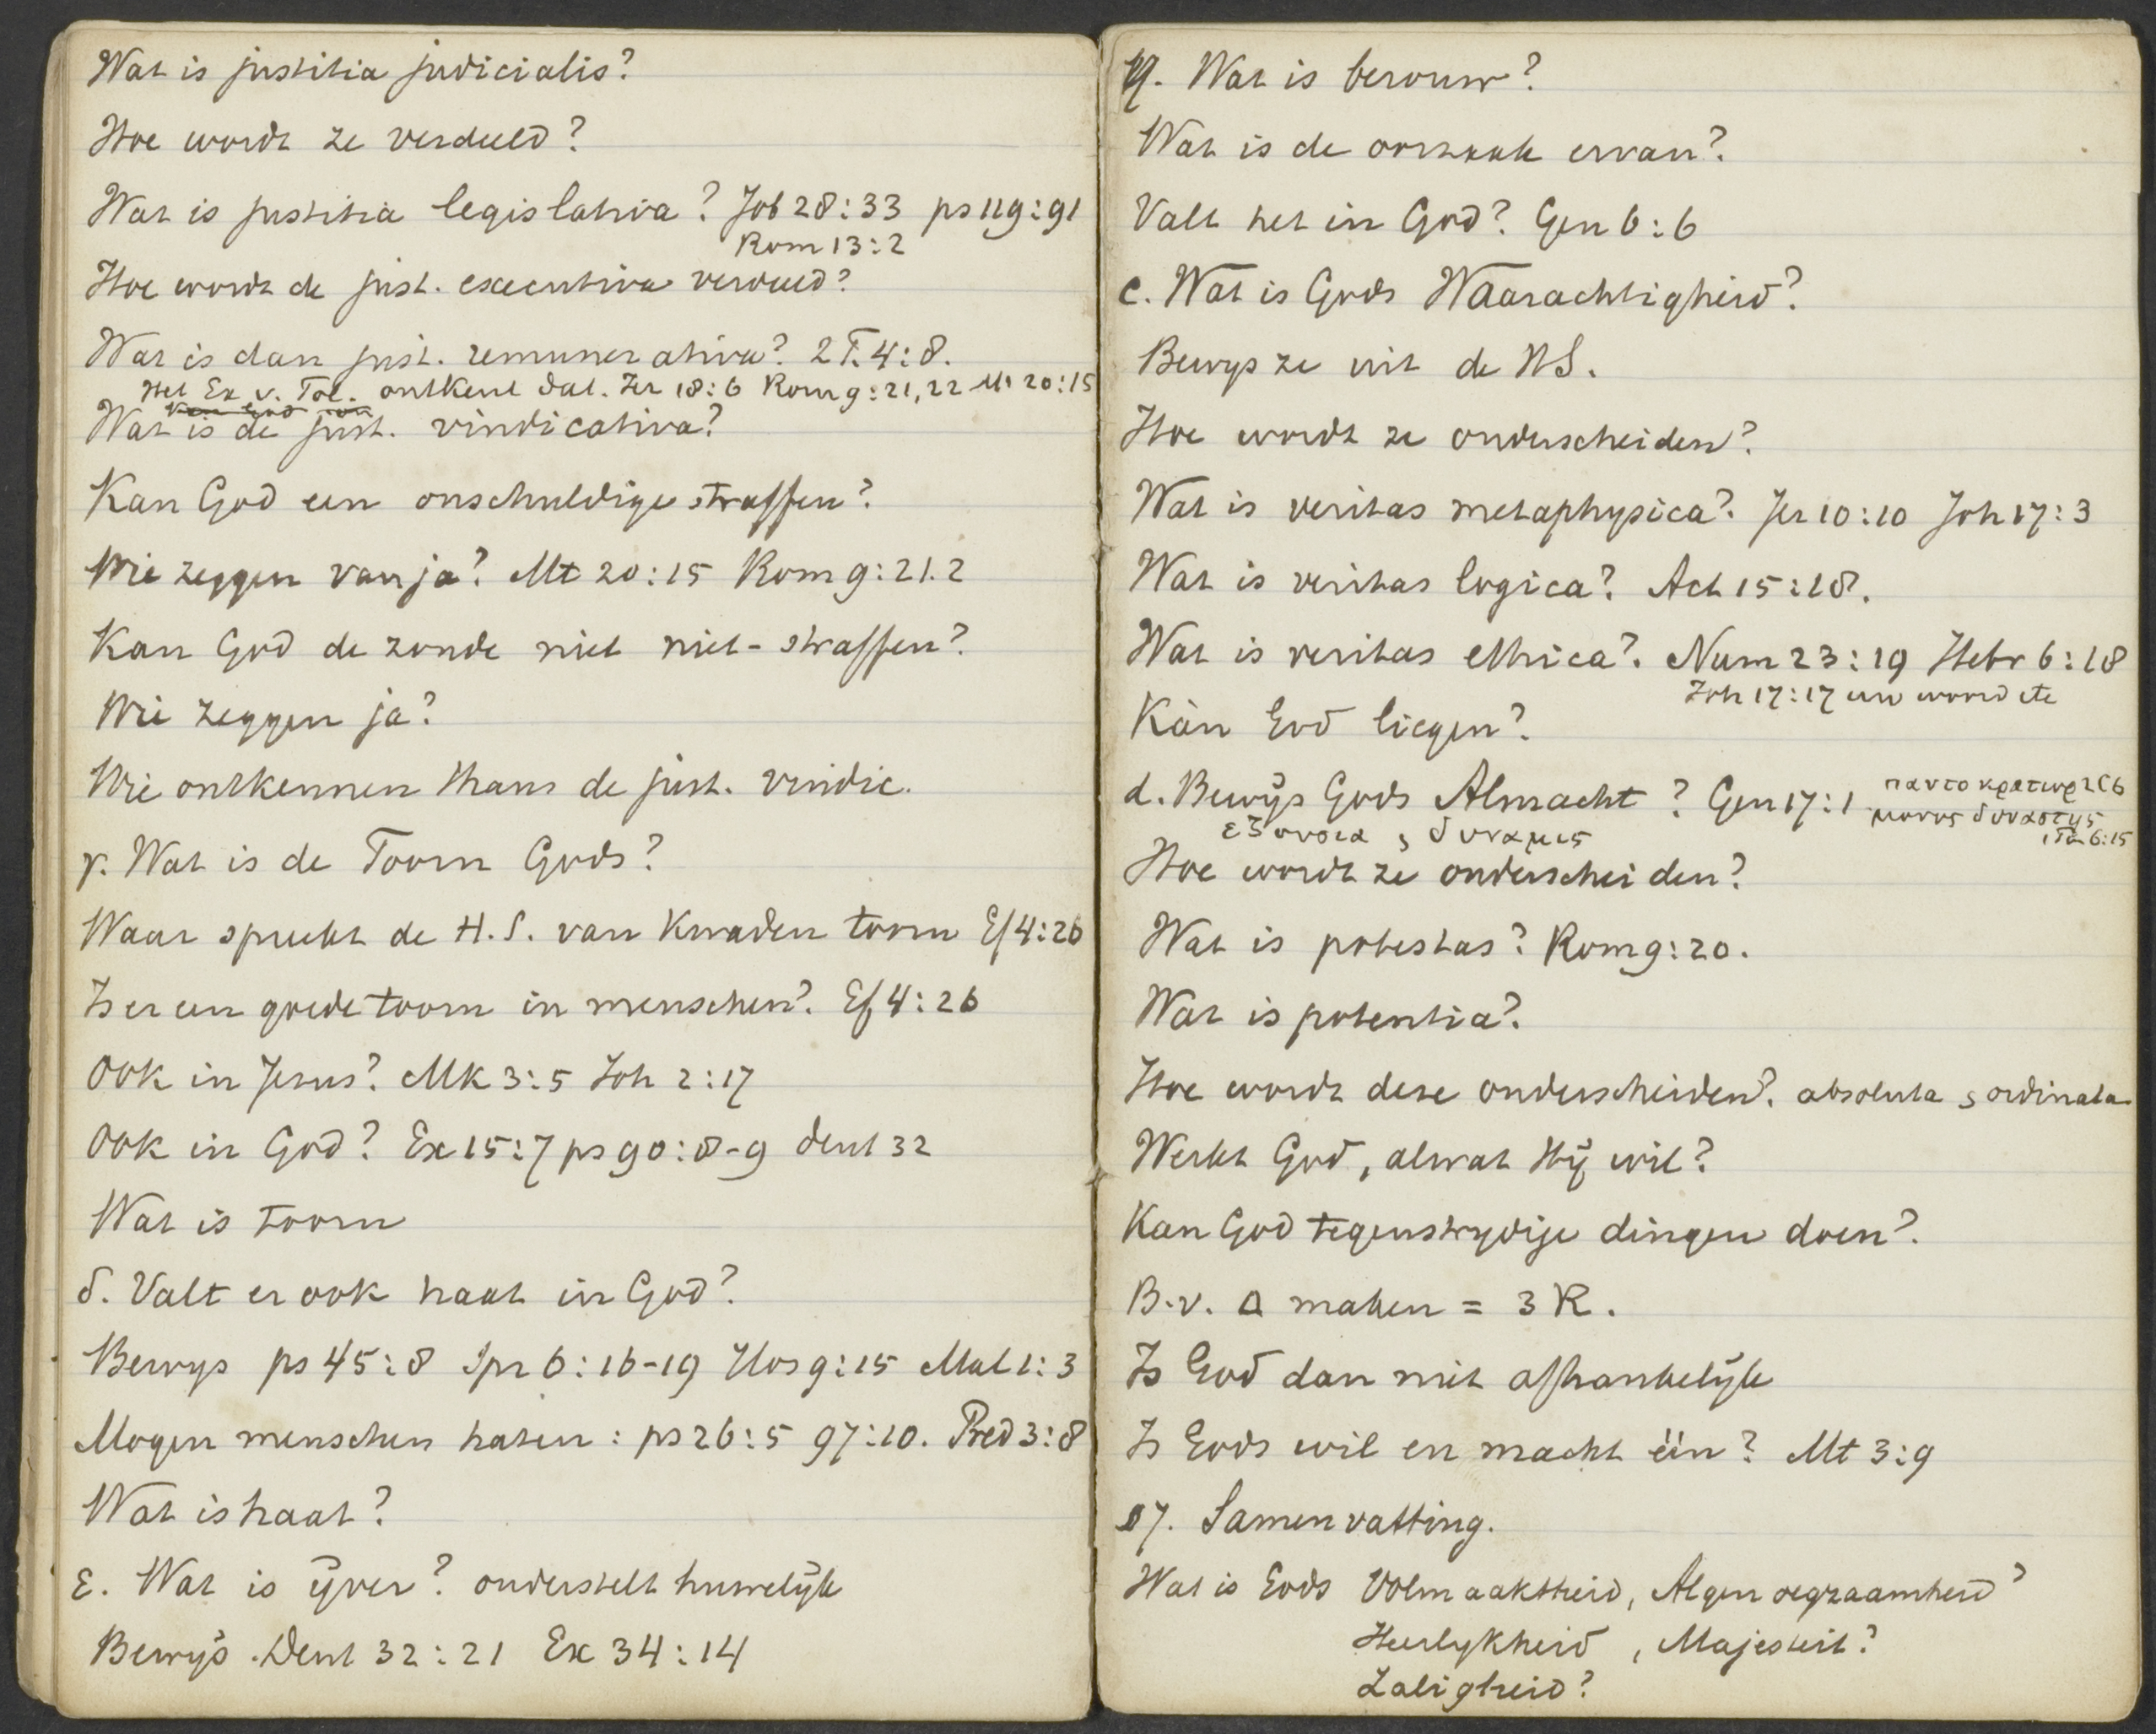 Wat is justitia judicialis?
Hoe wordt ze verdeeld?
Wat is justitia legislativa? Job 28:33 ps 119:91
Rom 13:2
Hoe wordt de just. executiva verdeeld?
Wat is dan just. remunerativa? 2 T. 4:8.
Het Ex v. Tol. ontkent dat. Jer 18:6 Rom 9:21,22 Mt 20:15
Wat is de just. vindicativa?
Kan God een onschuldige straffen?
Wie zeggen van ja? Mt 20:15 Rom 9:21.2
Kan God de zonde niet niet-straffen?
Wie zeggen ja?
Wie ontkennen thans de just. vindic.
γ. Wat is de Toorn Gods?
Waar spreekt de H.S. van Kwaden toorn Ef 4:26
Is er een goede toorn in menschen? Ef 4:26
Ook in Jesus? Mk 3:5 Joh 2:17
Ook in God? Ex 15:7 ps 90:8-9 deut 32
Wat is toorn
δ. Valt er ook haat in God?
Bewys ps 45:8 Spr 6:16-19 Hos 9:15 Mal 1:3
Mogen menschen haten: ps 26:5 97:10. Pred 3:8
Wat is haat?
ε. Wat is ÿver? onderstelt huwelÿk
Bewÿs. Deut 32:21 Ex 34:14
η. Wat is berouw?
Wat is de oorzaak ervan?
Valt het in God? Gen 6:6
c. Wat is Gods Waarachtigheid?
Bewys ze uit de HS.
Hoe wordt ze onderscheiden?
Wat is veritas metaphysica? Jer 10:10 Joh 17:3
Wat is veritas logica? Act 15:18.
Wat is veritas ethica? Num 23:19 Hebr 6:18
Joh 17:17 uw woord etc
Kàn God liegen?
d. Bewÿs Gods Almacht? Gen 17:1 παντοκρατωρ 2C6
μονος δυναστης
1 Ti 6:15
εξουσια, δυναμις
Hoe wordt ze onderscheiden?
Wat is potestas? Rom 9:20.
Wat is potentia?
Hoe wordt deze onderscheiden? absoluta, ordinata
Werkt God, alwat Hÿ wil?
Kan God tegenstrydige dingen doen?
B.v. Δ maken = 3 R.
Is God dan niet afhankelÿk
Is Gods wil en macht één? Mt 3:9
07. Samenvatting.
Wat is Gods Volmaaktheid, Algenoegzaamheid?
Heerlykheid, Majesteit?
Zaligheid?